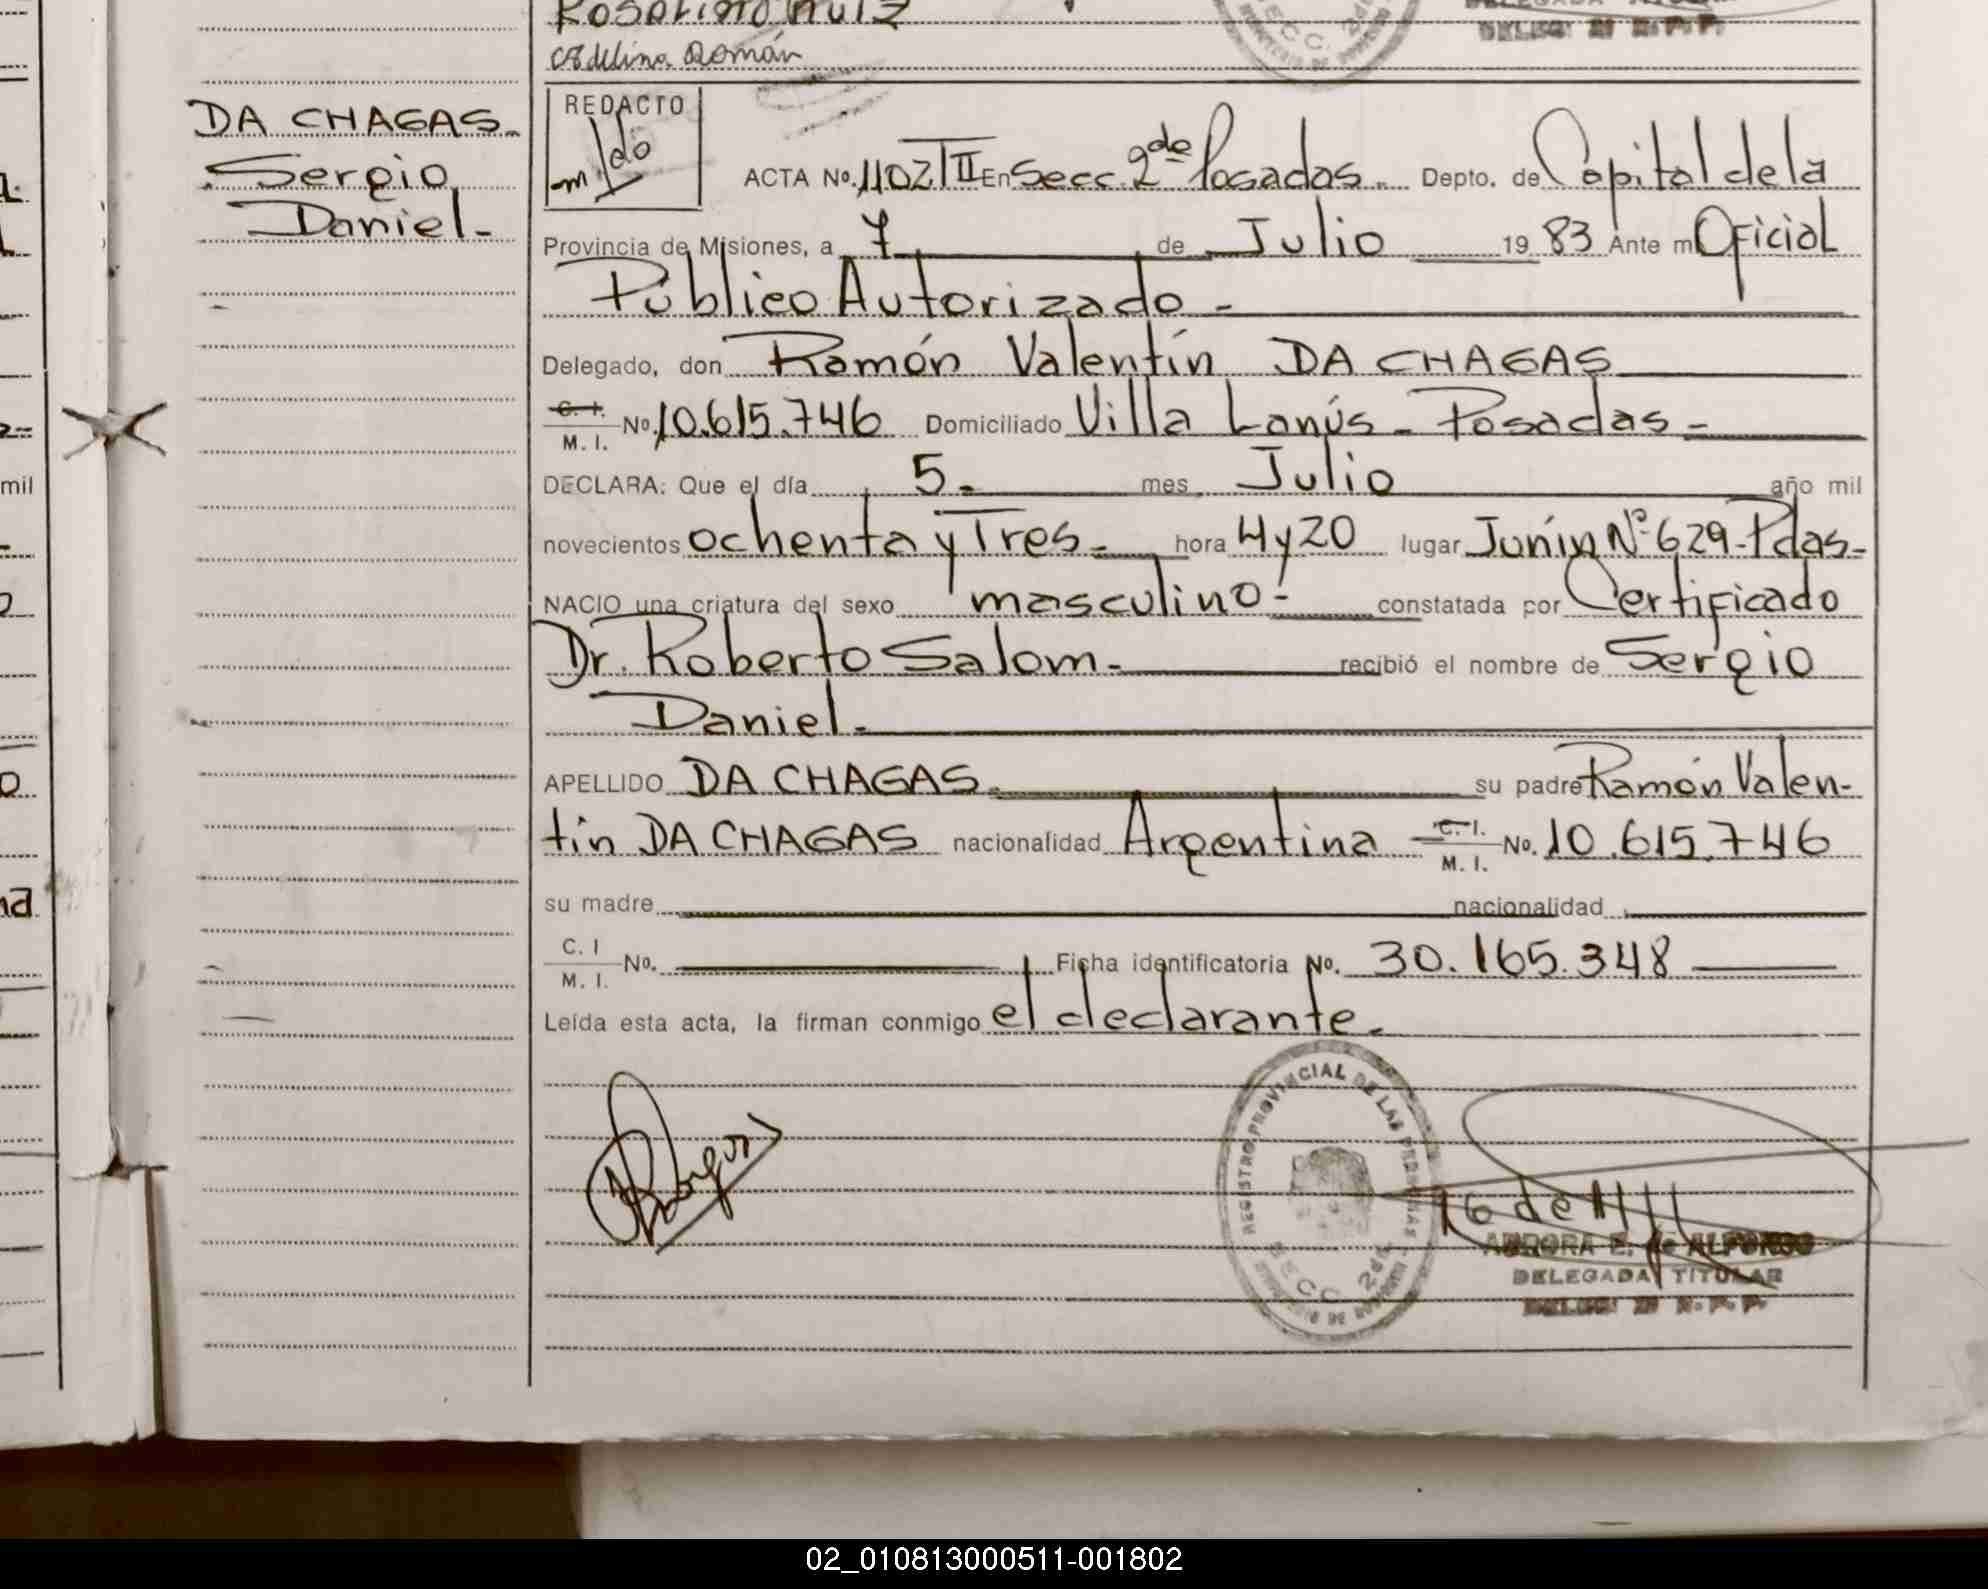 Adelina Román
DA CHAGAS
Sergio
Daniel-
REDACTO
ACTA No. 1102 TII En Secc. 2da Posadas. Depto. de Capital de la
Provincia de Misiones, a 7 de Julio 19 83 Ante mí Oficial
Público Autorizado-
Delegado, don Ramón Valentín DA CHAGAS
C. I. M. I. No. 10.615.746 Domiciliado Villa Lanús - Posadas -
DECLARA: Que el día 5. mes Julio año mil
novecientos ochenta y Tres- hora 4 y 20 lugar Junín Nº 629-Pdas-
NACIO una criatura del sexo masculino- constatada por Certificado
Dr. Roberto Salom- recibió el nombre de Sergio
Daniel-
APELLIDO DA CHAGAS. su padre Ramón Valen-
tín DA CHAGAS nacionalidad Argentina C. I. M. I. No. 10.615.746
su madre nacionalidad
C. I M. I. No. Ficha identificatoria No. 30.165.348
Leída esta acta, la firman conmigo el declarante.
REGISTRO PROVINCIAL DE LAS PERSONAS
SECC. 2da
AURORA E. de ALFONSO
DELEGADA TITULAR
mil
02_010813000511-001802